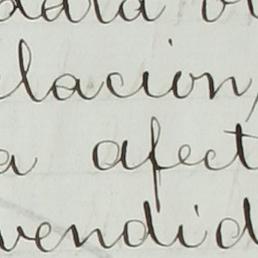 lación,
a afect
vendid